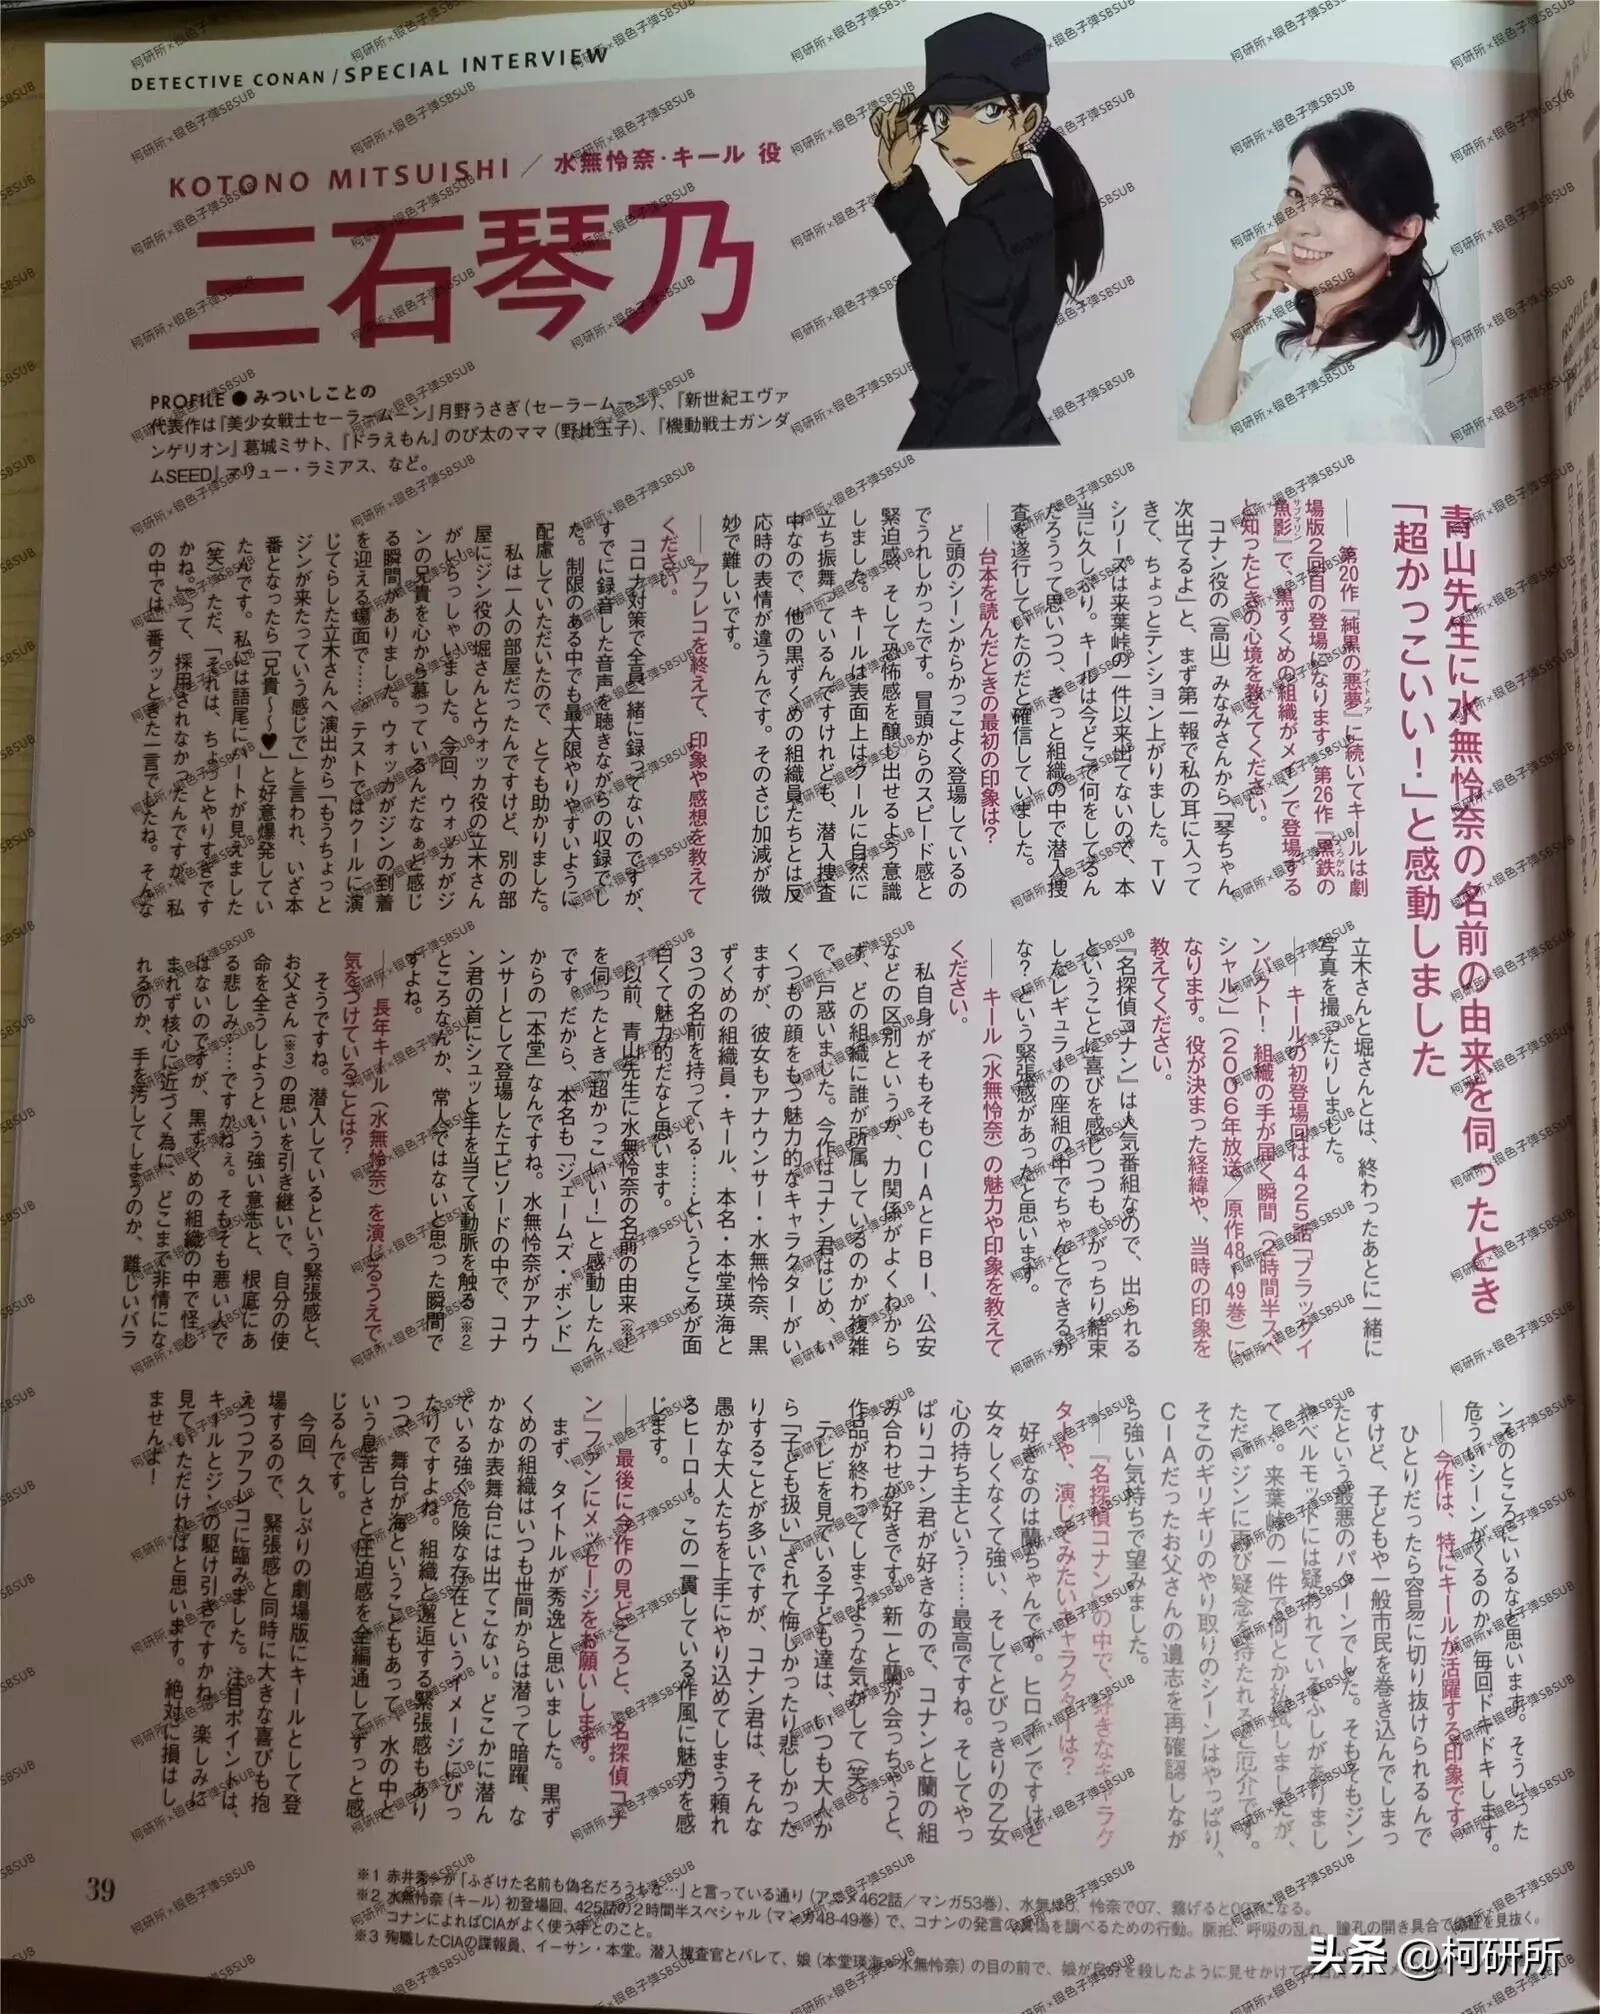 DETECTIVE CONAN/SPECIAL INTERVIEW
KOTONO MITSUISHI／水無怜奈・キール 役
三石琴乃
PROFILE ● みついしことの
代表作は『美少女戦士セーラームーン』月野うさぎ（セーラームーン）、『新世紀エヴァ
ンゲリオン』葛城ミサト、『ドラえもん』のび太のママ（野比玉子）、『機動戦士ガンダ
ムSEED』マリュー・ラミアス、など。
青山先生に水無怜奈の名前の由来を伺ったとき
「超かっこいい！」と感動しました
――第20作『純黒の悪夢』に続いてキールは劇
場版2回目の登場になります。第26作『黒鉄の
魚影』で、黒ずくめの組織がメインで登場する
と知ったときの心境を教えてください。
コナン役の（高山）みなみさんから「琴ちゃん
次出てるよ」と、まず第一報で私の耳に入って
きて、ちょっとテンション上がりました。TV
シリーズは来葉峠の一件以来出てないので、本
当に久しぶり。キールは今どこで何をしてるん
だろうって思いつつ、きっと組織の中で潜入捜
査を遂行していたのだと確信していました。
――台本を読んだときの最初の印象は？
ど頭のシーンからかっこよく登場しているの
でうれしかったです。冒頭からのスピード感と
緊迫感、そして恐怖感を醸し出せるよう意識
しました。キールは表面上はクールに自然に
立ち振舞っているんですけれども、潜入捜査
中なので、他の黒ずくめの組織員たちとは反
応時の表情が違うんです。そのさじ加減が微
妙で難しいです。
――アフレコを終えて、印象や感想を教えて
ください。
コロナ対策で全員一緒に録ってないのですが、
すでに録音した音声を聴きながらの収録でし
た。制限のある中でも最大限やりやすいように
配慮していただいたので、とても助かりました。
私は一人の部屋だったんですけど、別の部
屋にジン役の堀さんとウォッカ役の立木さん
がいらっしゃいました。今回、ウォッカがジ
ンの兄貴を心から慕っているんだなぁと感じ
る瞬間がありました。ウォッカがジンの到着
を迎える場面で……テストではクールに演
じてらした立木さんへ演出から「もうちょっと
ジンが来たっていう感じで」と言われ、いざ本
番となったら「兄貴～～♥」と好意爆発してい
たんです。私には語尾にハートが見えました
（笑）。ただ、「それは、ちょっとやりすぎです
かね。」って、採用されなかったんですが、私
の中では一番グッときた一言でしたね。そんな
立木さんと堀さんとは、終わったあとに一緒に
写真を撮ったりしました。
――キールの初登場回は425話「ブラックイ
ンパクト！組織の手が届く瞬間（2時間半スペ
シャル）」（2006年放送／原作48-49巻）に
なります。役が決まった経緯や、当時の印象を
教えてください。
『名探偵コナン』は人気番組なので、出られる
ということに喜びを感じつつも、がっちり結束
したレギュラーの座組の中でちゃんとできるか
な？という緊張感があったと思います。
――キール（水無怜奈）の魅力や印象を教えて
ください。
私自身がそもそもCIAとFBI、公安
などの区別というか、力関係がよくわから
ず、どの組織に誰が所属しているのかが複雑
で、戸惑いました。今作はコナン君はじめ、い
くつもの顔をもつ魅力的なキャラクターがい
ますが、彼女もアナウンサー・水無怜奈、黒
ずくめの組織員・キール、本名・本堂瑛海と
3つの名前を持っている……というところが面
白くて魅力的だなと思います。
以前、青山先生に水無怜奈の名前の由来（※1）
を伺ったとき「超かっこいい！」と感動したん
です。だから、本名も「ジェームズ・ボンド」
からの「本堂」なんですね。水無怜奈がアナウ
ンサーとして登場したエピソードの中で、コナ
ン君の首にシュッと手を当てて動脈を触る（※2）
ところなんか、常人ではないと思った瞬間で
すよね。
――長年キール（水無怜奈）を演じるうえで
気をつけていることは？
そうですね。潜入しているという緊張感と、
お父さん（※3）の思いを引き継いで、自分の使
命を全うしようという強い意志と、根底にあ
る悲しみ……ですかねぇ。そもそも悪い人で
はないのですが、黒ずくめの組織の中で怪し
まれず核心に近づく為に、どこまで非情にな
れるのか、手を汚してしまうのか、難しいバラ
ンスのところにいるなと思います。そういった
危ういシーンがくるのか、毎回ドキドキします。
――今作は、特にキールが活躍する印象です。
ひとりだったら容易に切り抜けられるんで
すけど、子どもや一般市民を巻き込んでしまっ
たという最悪のパターンでした。そもそもジン
やベルモットには疑われているふしがありまし
て。来葉峠の一件で何とか払拭しましたが、
ただ、ジンに再び疑念を持たれると厄介です。
そこのギリギリのやり取りのシーンはやっぱり、
CIAだったお父さんの遺志を再確認しなが
ら強い気持ちで望みました。
――『名探偵コナン』の中で、好きなキャラク
ターや、演じてみたいキャラクターは？
好きなのは蘭ちゃんです。ヒロインですけど
女々しくなくて強い、そしてとびっきりの乙女
心の持ち主という……最高ですね。そしてやっ
ぱりコナン君が好きなので、コナンと蘭の組
み合わせが好きです。新一と蘭が会っちゃうと、
作品が終わってしまうような気がして（笑）。
テレビを見ている子ども達は、いつも大人か
ら「子ども扱い」されて悔しかったり悲しかった
りすることが多いですが、コナン君は、そんな
愚かな大人たちを上手にやり込めてしまう頼れ
るヒーロー。この一貫している作風に魅力を感
じます。
――最後に今作の見どころと、『名探偵コナ
ン』ファンにメッセージをお願いします。
まず、タイトルが秀逸と思いました。黒ず
くめの組織はいつも世間からは潜って暗躍、な
かなか表舞台には出てこない。どこかに潜ん
でいる強く危険な存在というイメージにぴっ
たりですよね。組織と邂逅する緊張感もあり
つつ、舞台が海ということもあって、水の中と
いう息苦しさと圧迫感を全編通してずっと感
じるんです。
今回、久しぶりの劇場版にキールとして登
場するので、緊張感と同時に大きな喜びも抱
えつつアフレコに臨みました。注目ポイントは、
キールとジンの駆け引きですかね。楽しみに
見ていただければと思います。絶対に損はし
ませんよ！
※1 赤井秀一が「ふざけた名前も偽名だろうしな…」と言っている通り（アニメ462話／マンガ53巻）、水無は0、怜奈で07、繋げると007になる。
※2 水無怜奈（キール）初登場回、425話の2時間半スペシャル（マンガ48-49巻）で、コナンの発言の真偽を調べるための行動。脈拍、呼吸の乱れ、瞳孔の開き具合で嘘を見抜く。
コナンによればCIAがよく使う手とのこと。
※3 殉職したCIAの諜報員、イーサン・本堂。潜入捜査官とバレて、娘（本堂瑛海・水無怜奈）の目の前で、娘が自分を殺したように見せかけて
39
柯研所×银色子弹SBSUB
头条 @柯研所